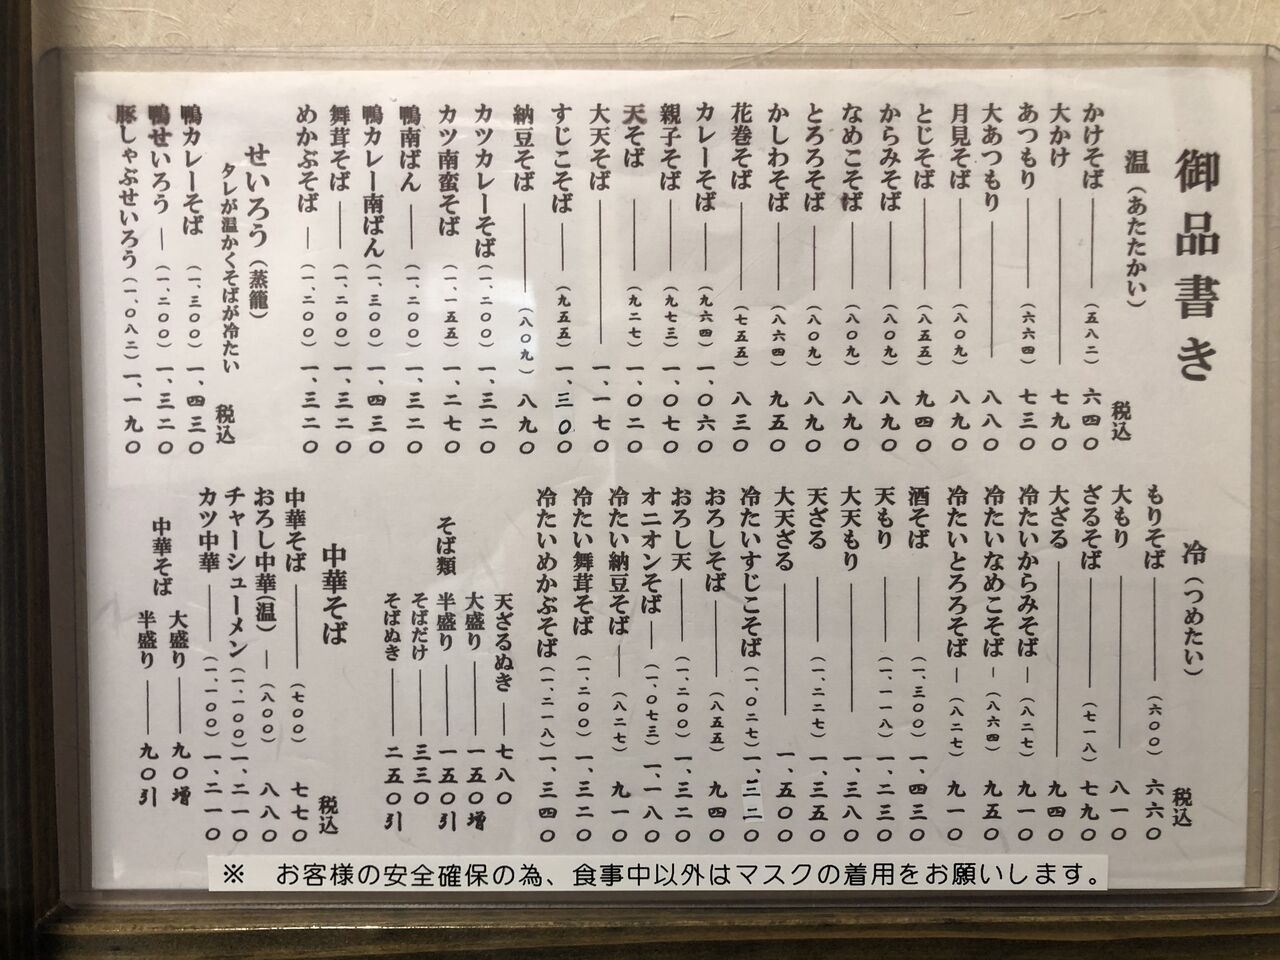 御品書き
温（あたたかい）
税込
かけそば（五八二）六四〇
大かけ 七九〇
あつもり（六六四）七三〇
大あつもり 八八〇
月見そば（八〇九）八九〇
とじそば（八五五）九四〇
からみそば（八〇九）八九〇
なめこそば（八〇九）八九〇
とろろそば（八〇九）八九〇
かしわそば（八六四）九五〇
花巻そば（七五五）八三〇
カレーそば（九六四）一、〇六〇
親子そば（九七三）一、〇七〇
天そば（九二七）一、〇二〇
大天そば 一、一七〇
すじこそば（九五五）一、三〇〇
納豆そば（八〇九）八九〇
カツカレーそば（一、二〇〇）一、三二〇
カツ南蛮そば（一、一五五）一、二七〇
鴨南ばん（一、二〇〇）一、三二〇
鴨カレー南ばん（一、三〇〇）一、四三〇
舞茸そば（一、二〇〇）一、三二〇
めかぶそば（一、二〇〇）一、三二〇
せいろう（蒸籠）
タレが温かくそばが冷たい
税込
鴨カレーそば（一、三〇〇）一、四三〇
鴨せいろう（一、二〇〇）一、三二〇
豚しゃぶせいろう（一、〇八二）一、一九〇
冷（つめたい）
税込
もりそば（六〇〇）六六〇
大もり 八一〇
ざるそば（七一八）七九〇
大ざる 九四〇
冷たいからみそば（八二七）九一〇
冷たいなめこそば（八六四）九五〇
冷たいとろろそば（八二七）九一〇
酒そば（一、三〇〇）一、四三〇
天もり（一、一一八）一、二三〇
大天もり 一、三八〇
天ざる（一、二二七）一、三五〇
大天ざる 一、五〇〇
冷たいすじこそば（一、〇二七）一、三二〇
おろしそば（八五五）九四〇
おろし天（一、二〇〇）一、三二〇
オニオンそば（一、〇七三）一、一八〇
冷たい納豆そば（八二七）九一〇
冷たい舞茸そば（一、二〇〇）一、三二〇
冷たいめかぶそば（一、二一八）一、三四〇
天ざるぬき 七八〇
そば類 大盛り 一五〇増
半盛り 一五〇引
そばだけ 三三〇
そばぬき 二五〇引
中華そば
税込
中華そば（七〇〇）七七〇
おろし中華（温）（八〇〇）八八〇
チャーシューメン（一、一〇〇）一、二一〇
カツ中華（一、一〇〇）一、二一〇
中華そば 大盛り 九〇増
半盛り 九〇引
※ お客様の安全確保の為、食事中以外はマスクの着用をお願いします。